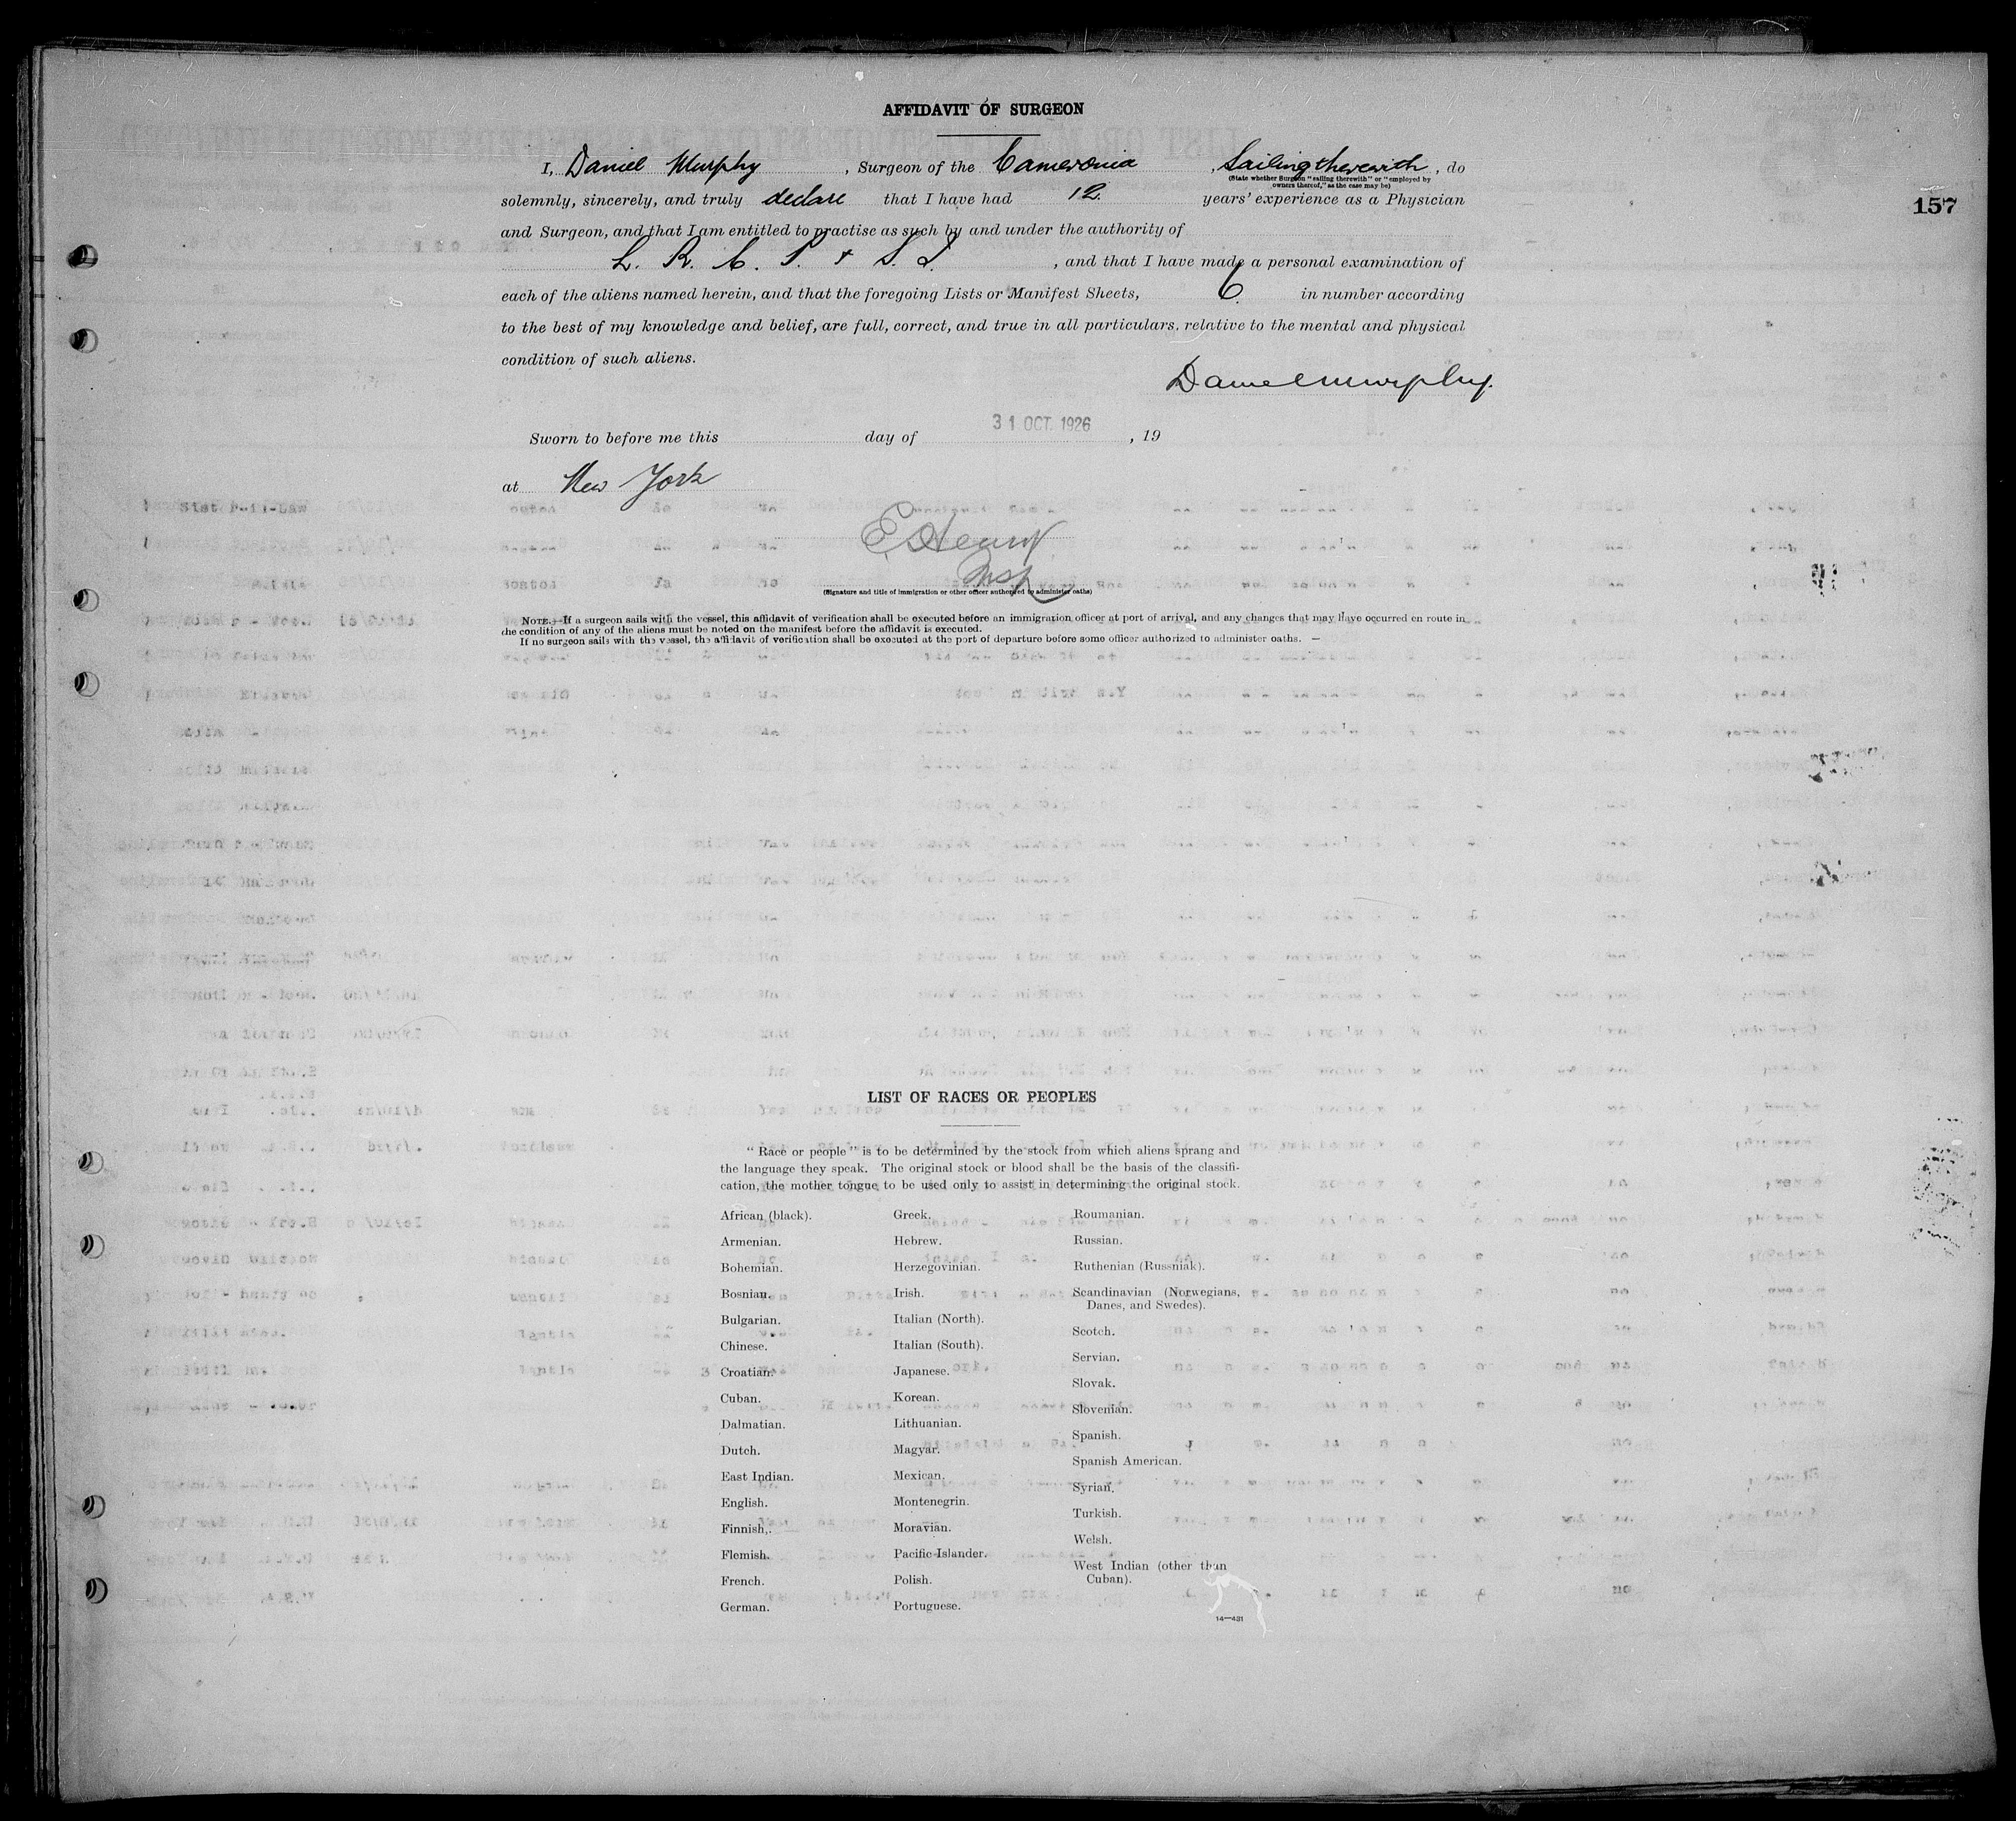 AFFIDAVIT OF SURGEON
I, Daniel Murphy, Surgeon of the Cameronia, Sailing therewith, do
(State whether Surgeon "sailing therewith" or "employed by
owners thereof," as the case may be)
157
solemnly, sincerely, and truly declare that I have had 12 years' experience as a Physician
and Surgeon, and that I am entitled to practise as such by and under the authority of
L. R. C. P. + S. I., and that I have made a personal examination of
each of the aliens named herein, and that the foregoing Lists or Manifest Sheets, 6. in number according
to the best of my knowledge and belief, are full, correct, and true in all particulars, relative to the mental and physical
condition of such aliens.
Daniel Murphy.
Sworn to before me this day of 31 OCT. 1926, 19
at New York
Insp
(Signature and title of immigration or other officer authorized to administer oaths)
NOTE.—If a surgeon sails with the vessel, this affidavit of verification shall be executed before an immigration officer at port of arrival, and any changes that may have occurred en route in
the condition of any of the aliens must be noted on the manifest before the affidavit is executed.
If no surgeon sails with the vessel, the affidavit of verification shall be executed at the port of departure before some officer authorized to administer oaths.
LIST OF RACES OR PEOPLES
"Race or people" is to be determined by the stock from which aliens sprang and
the language they speak. The original stock or blood shall be the basis of the classifi-
cation, the mother tongue to be used only to assist in determining the original stock.
African (black).
Armenian.
Bohemian.
Bosnian.
Bulgarian.
Chinese.
Croatian.
Cuban.
Dalmatian.
Dutch.
East Indian.
English.
Finnish.
Flemish.
French.
German.
Greek.
Hebrew.
Herzegovinian.
Irish.
Italian (North).
Italian (South).
Japanese.
Korean.
Lithuanian.
Magyar.
Mexican.
Montenegrin.
Moravian.
Pacific Islander.
Polish.
Portuguese.
Roumanian.
Russian.
Ruthenian (Russniak).
Scandinavian (Norwegians,
Danes, and Swedes).
Scotch.
Servian.
Slovak.
Slovenian.
Spanish.
Spanish American.
Syrian.
Turkish.
Welsh.
West Indian (other than
Cuban).
14—431